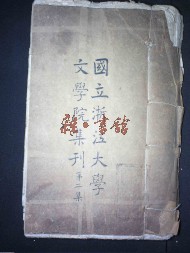 國立浙江大學
文學院集刊
第二集